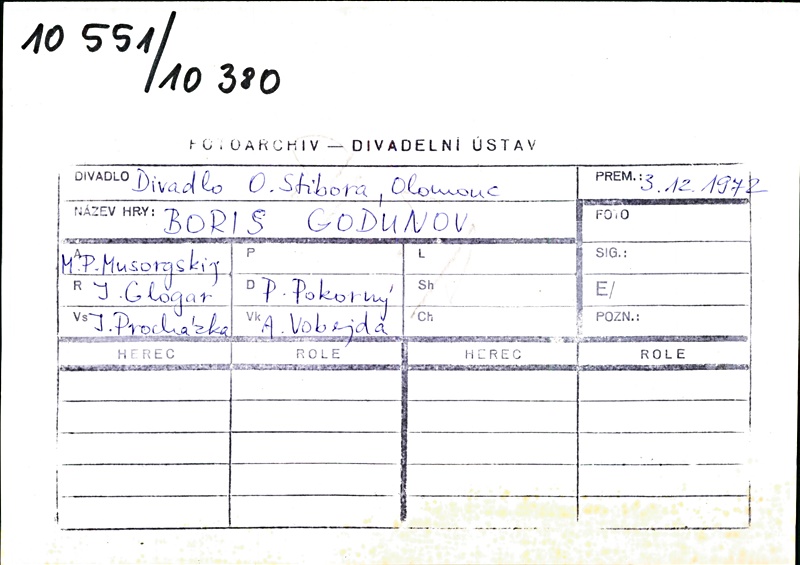 10 551/
10 380
FOTOARCHIV — DIVADELNÍ ÚSTAV
DIVADLO Divadlo O. Stibora, Olomouc PREM.: 3.12.1972
NÁZEV HRY: BORIS GODUNOV FOTO
A M.P. Musorgskij P L SIG.:
R J. Glogar D P. Pokorný Sh E/
Vs J. Procházka Vk A. Vobejda Ch POZN.:
HEREC ROLE HEREC ROLE